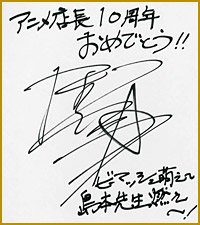 アニメ店長10周年
おめでとう!!
萌え〜
島本先生燃え
〜!